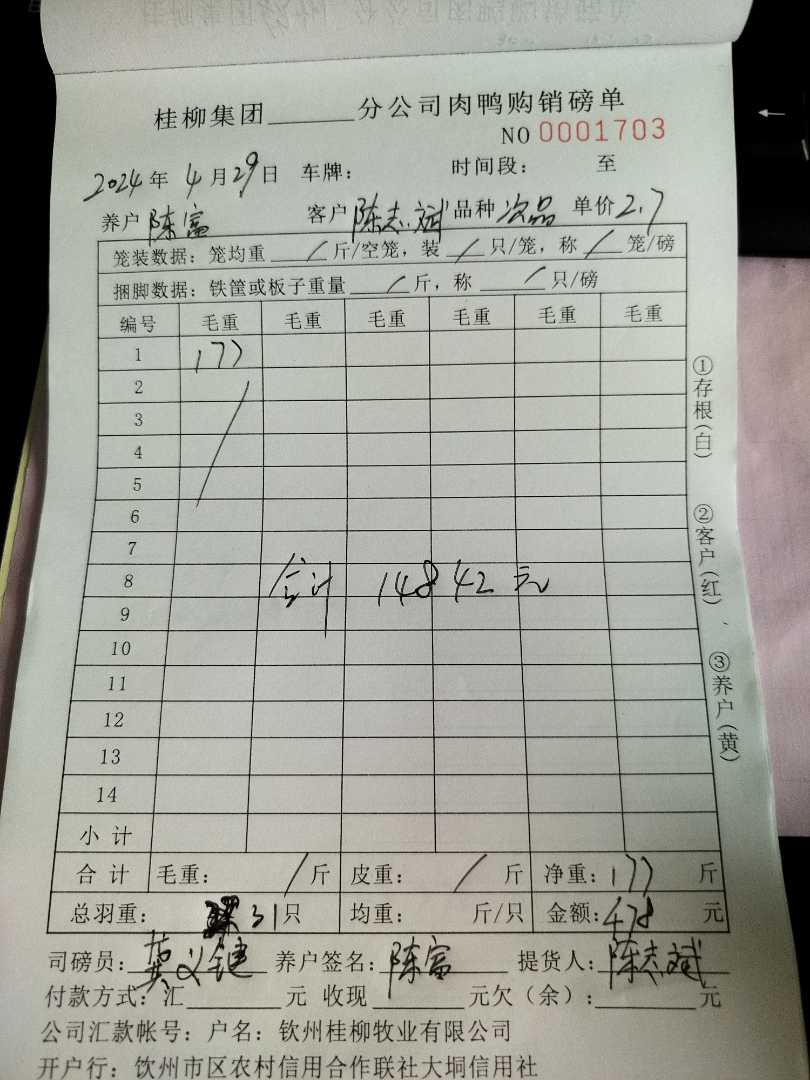 桂柳集团______分公司肉鸭购销磅单
NO 0001703
2024年 4月29日 车牌: 时间段: 至
养户 陈富 客户 陈志斌 品种 次品 单价 2.7
笼装数据: 笼均重 / 斤/空笼, 装 / 只/笼, 称 / 笼/磅
捆脚数据: 铁筐或板子重量 / 斤, 称 / 只/磅
编号 毛重 毛重 毛重 毛重 毛重 毛重
1 177
2
3
4
5
6
7
8 合计 14842元
9
10
11
12
13
14
小计
合计 毛重: / 斤 皮重: / 斤 净重: 177 斤
总羽重: 31只 均重: 斤/只 金额: 478 元
司磅员: 莫义键 养户签名: 陈富 提货人: 陈志斌
付款方式: 汇______元 收现______元欠(余): ______元
公司汇款帐号: 户名: 钦州桂柳牧业有限公司
开户行: 钦州市区农村信用合作联社大垌信用社
①存根(白) ②客户(红) ③养户(黄)